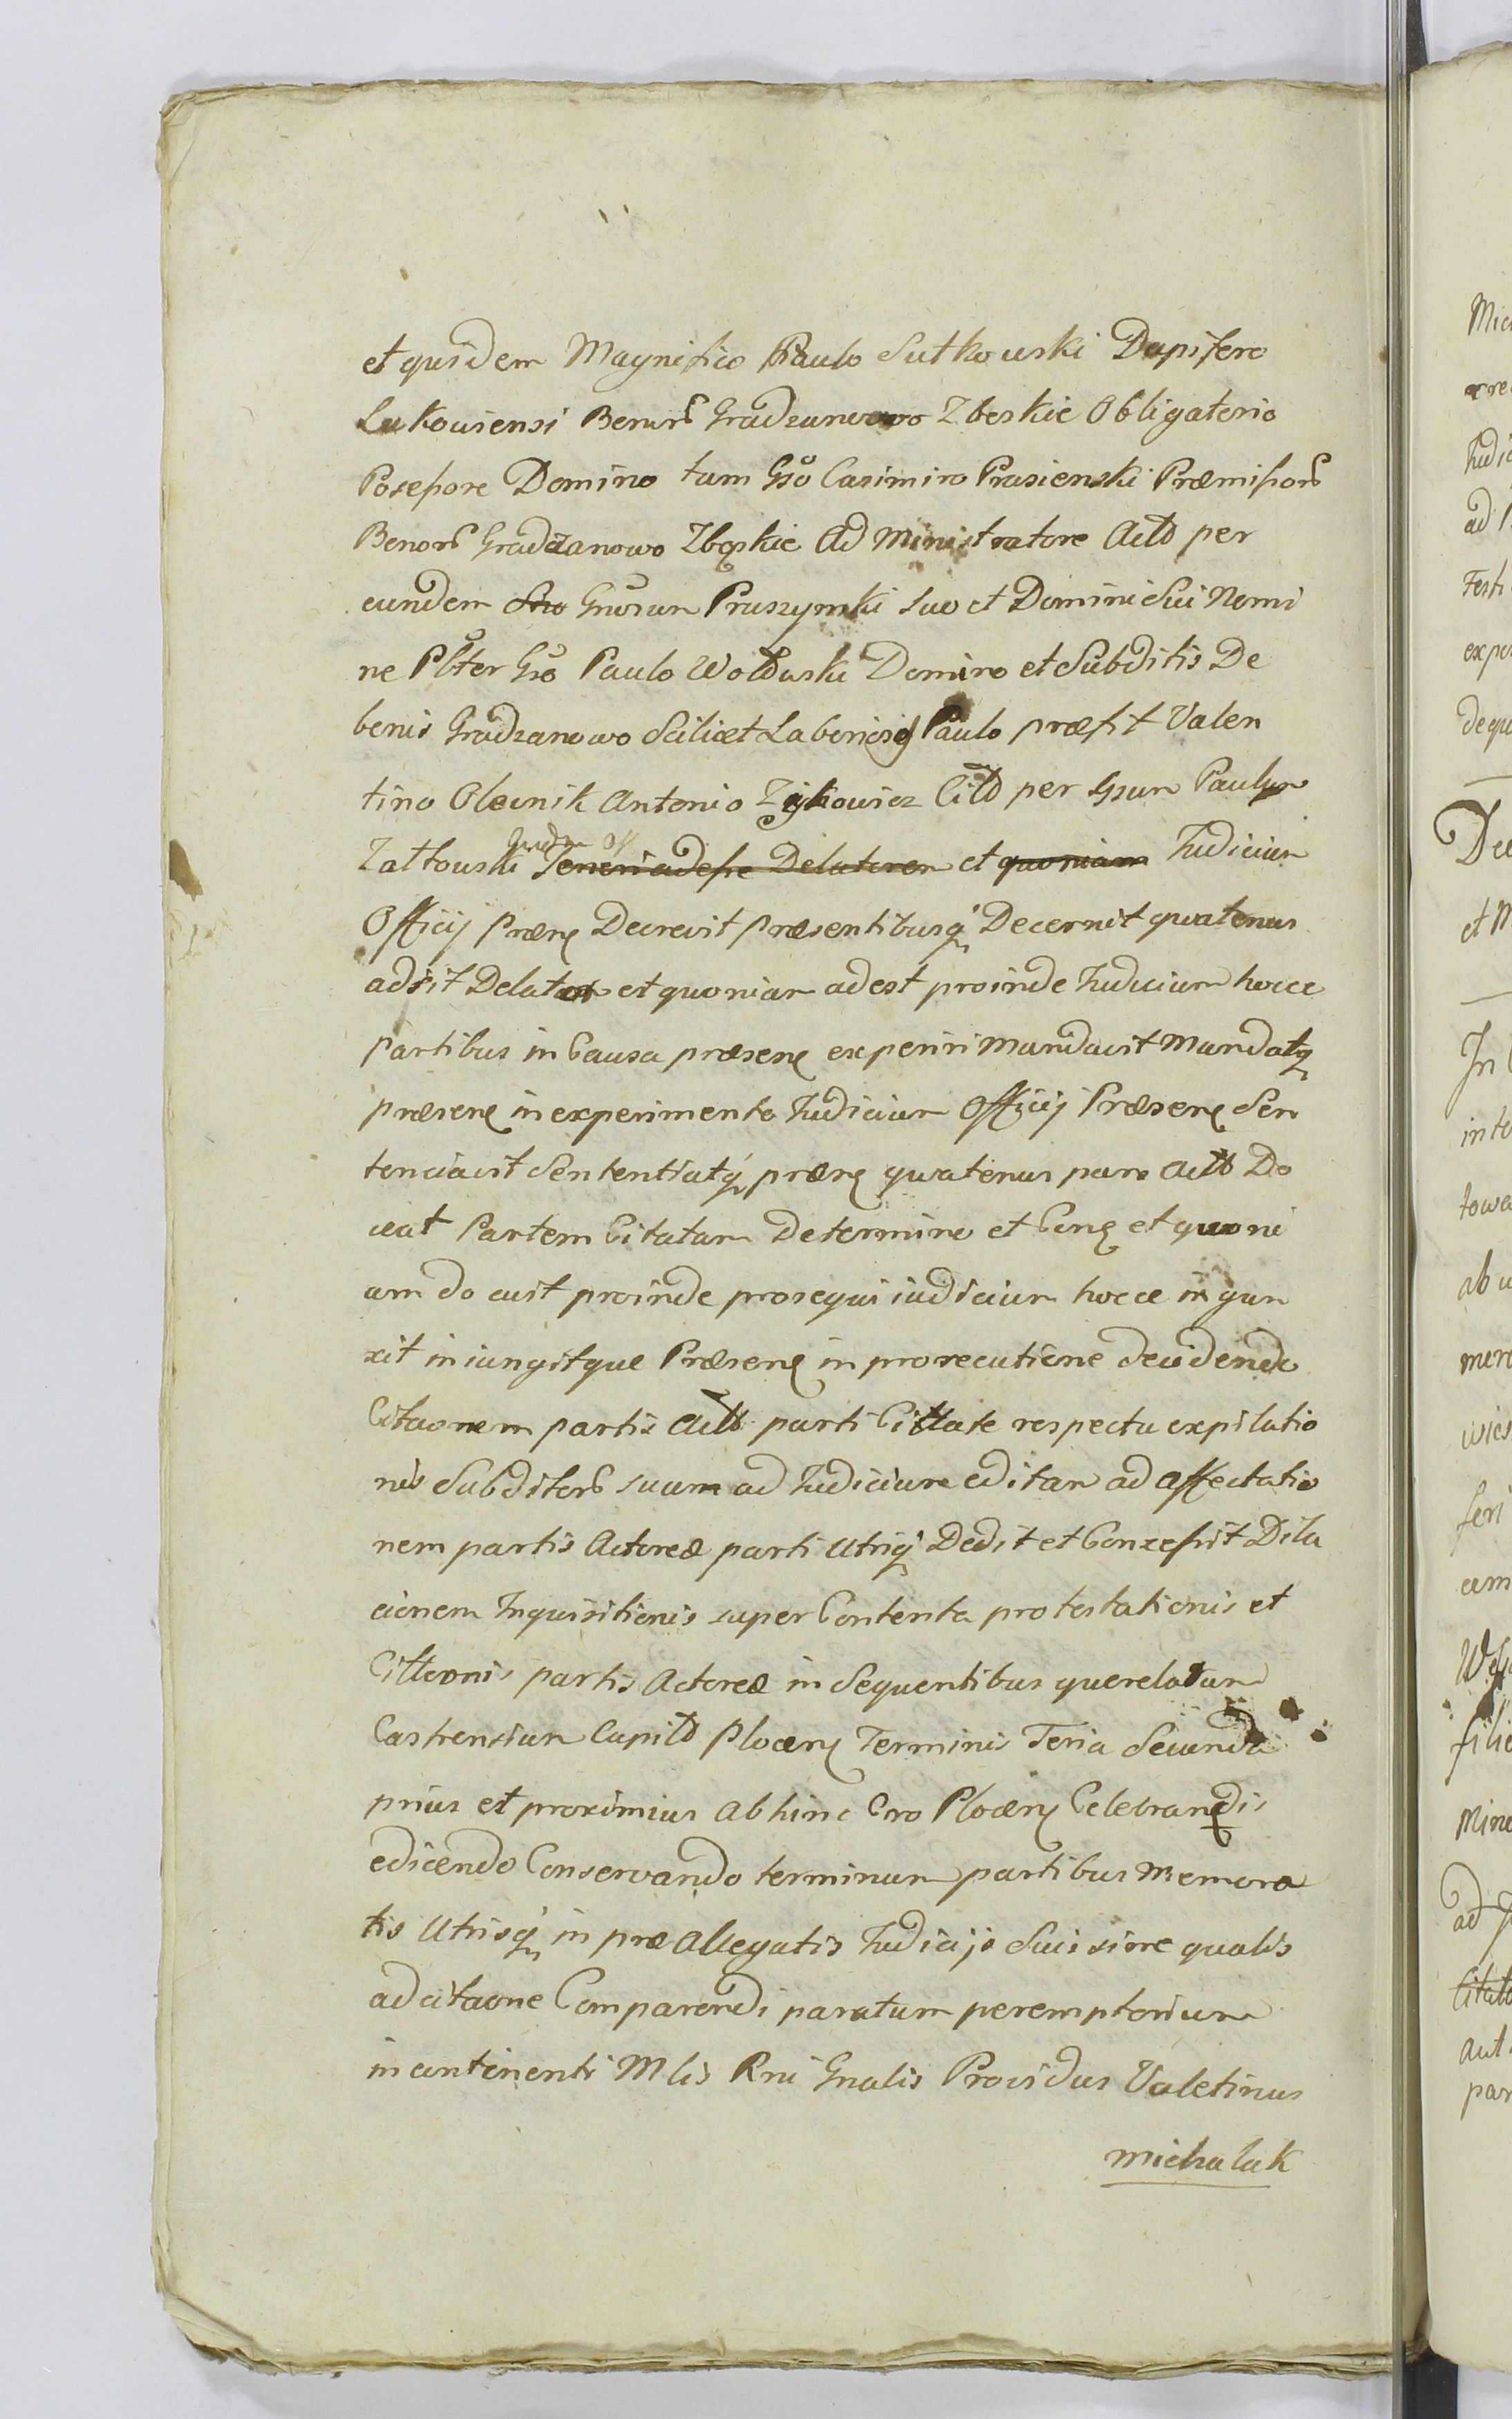 et quidem Magnifico Paulo Sutkowski Dapifero
Lukoviensi Benorũ Gradzanowo Zbeskie Obligatorio
Posessore Domino tam Gso Casimiro Prasienski Præmissorũ
Benorũ Gradzanowo Zbęskie Administratore Actõ per
eundem Gnosum Pruszynski suo et Domini Sui Nomi
ne Plter Gso Paulo Woldwski Domino et Subditis De
benis Gradzanowo Scilicet Laboriosis Paulo præfft Valen
tino Olernik Antonio Zykowicz Citõ per Gsum Paulum
Zattowski Teneri adesse Delatorem et quoniam Iudicium
Officij Præns Decrevit præsentibusq Decernit quatenus
adsit Delator et quoniam adest proinde Iudicium hocce
partibus in Causa præsens experiri mandavit Mandatq
præsens in experimento Iudicium Officij Præsens Sen
tenciavit Sententiatq præns quatenus pars Actõ Do
ceat Partem Citatam De termino et Cong et quoni
am do cuit proinde prosequi iudicium hocce in gun
xit iniungitque Præsens in prosecutione decidendo
Citaonem partis Actõ parti Cittate respectu expilatio
nis Subditorũ suum ad Iudicium editam ad affectatio
nem partis Actoreæ parti utriq Dedit et Concessit Dila
cionem Inquisitionis super Contenta protestationis et
Cittaonis partis Actoreæ in Sequentibus querelarum
Castrensium Capitõ Plocens Terminis Feria Secunda
prius et proximius abhinc Cro Plocens Celebrandis
edicendo Conservando terminum partibus Memora
tis Utrisq in præ allegatis Iudicijs Sui sine qualis
adcitaone Comparendi paratum peremptorium
incontinenti Mlis Rni Gnalis Providus Valetinus
michalak
Mic
Iudic
ad
Testi
expo
dequ
Dec
et M
In
in to
towa
ab u
mero
wies
feri
cum
filie
Mine
ad
Citat
aut
par